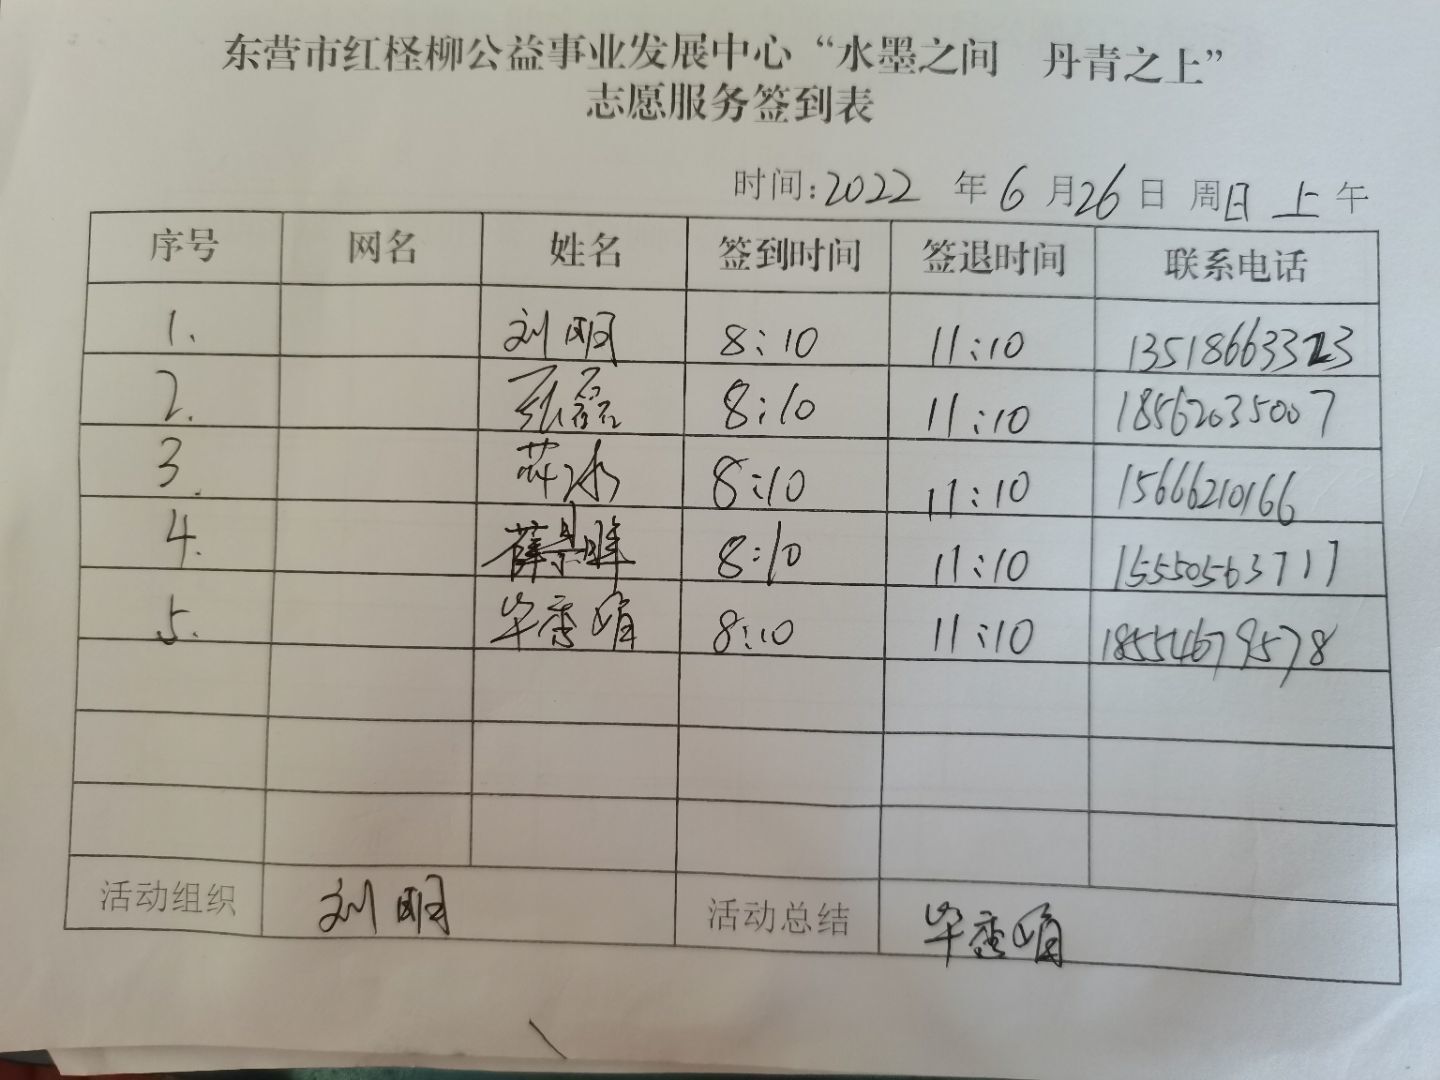 东营市红柽柳公益事业发展中心“水墨之间 丹青之上”
志愿服务签到表
时间:2022 年 6 月 26 日 周日 上午
序号 网名 姓名 签到时间 签退时间 联系电话
1. 刘明 8:10 11:10 13518663323
2. 张磊 8:10 11:10 18562035007
3. 8:10 11:10 15666210166
4. 薛景晖 8:10 11:10 15550563717
5. 毕秀娟 8:10 11:10 18554679578
活动组织 刘明 活动总结 毕秀娟